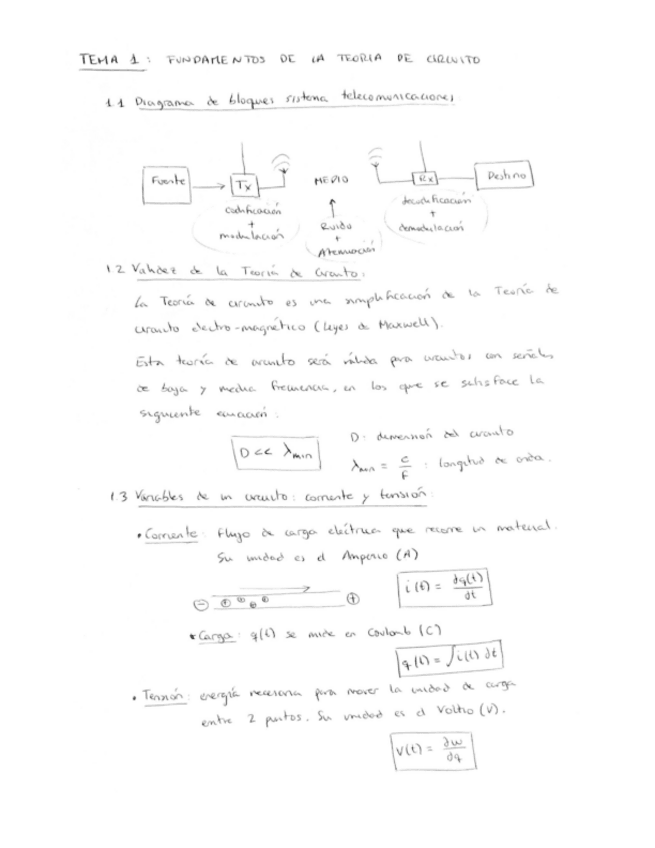 TEMA 1 : FUNDAMENTOS DE LA TEORIA DE CIRCUITO
1.1 Diagrama de bloques sistema telecomunicaciones
Fuente → Tx MEDIO Rx Destino
codificación
+
modulación
↑
Ruido
+
Atenuación
decodificación
+
demodulación
1.2 Validez de la Teoría de Circuito:
La Teoría de circuito es una simplificación de la Teoría de
circuito electro-magnético (Leyes de Maxwell).
Esta teoría de circuito será válida para circuitos con señales
de baja y media frecuencia, en los que se satisface la
siguiente ecuación :
D << λmin
D: dimensión del circuito
λmin = c/F : longitud de onda.
1.3 Variables de un circuito: corriente y tensión:
• Corriente: Flujo de carga eléctrica que recorre un material.
Su unidad es el Amperio (A)
i(t) = dq(t)/dt
* Carga: q(t) se mide en Coulomb (C)
q(t) = ∫i(t) dt
• Tensión: energía necesaria para mover la unidad de carga
entre 2 puntos. Su unidad es el Voltio (V).
V(t) = ∂w/∂q